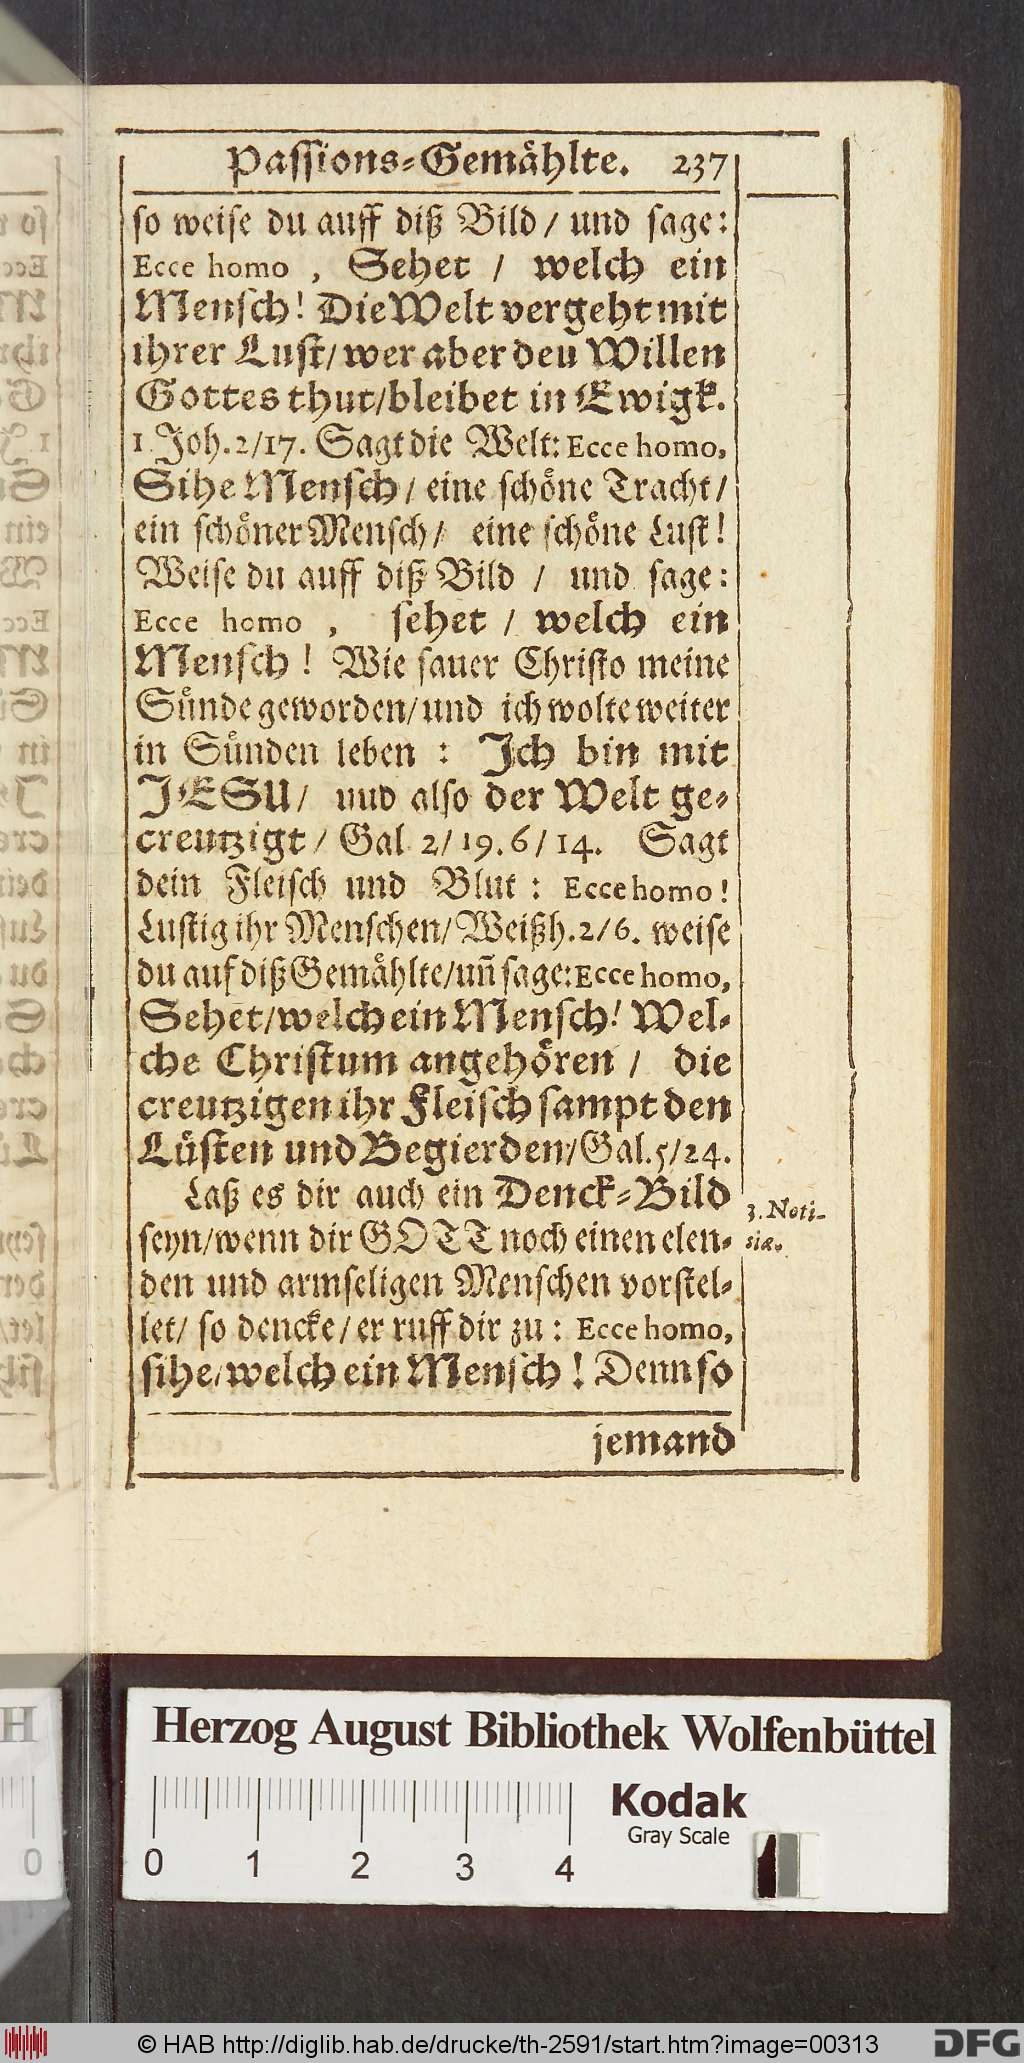 Passions-Gemählte. 237
so weise du auff diß Bild / und sage:
Ecce homo , Sehet / welch ein
Mensch! Die Welt vergeht mit
ihrer Lust/ wer aber deu Willen
Gottes thut/bleibet in Ewigk.
1 Joh. 2/17. Sagt die Welt: Ecce homo,
Sihe Mensch/ eine schöne Tracht/
ein schöner Mensch/ eine schöne Lust!
Weise du auff diß Bild / und sage:
Ecce homo , sehet / welch ein
Mensch ! Wie sauer Christo meine
Sünde geworden/ und ich wolte weiter
in Sünden leben : Ich bin mit
JESU/ uud also der Welt ge-
creutzigt / Gal 2/ 19. 6/ 14. Sagt
dein Fleisch und Blut : Ecce homo !
Lustig ihr Menschen/ Weißh. 2/6. weise
du auf diß Gemählte/ uñ sage: Ecce homo,
Sehet/welch ein Mensch! Wel-
che Christum angehören / die
creutzigen ihr Fleisch sampt den
Lüsten und Begierden/ Gal. 5/24.
Laß es dir auch ein Denck-Bild
seyn/wenn dir GOTT noch einen elen-
den und armseligen Menschen vorstel-
let/ so dencke/ er ruff dir zu : Ecce homo,
sihe/welch ein Mensch ! Denn so
jemand
3. Noti-
tiæ.
Herzog August Bibliothek Wolfenbüttel
Kodak
Gray Scale
0 1 2 3 4
© HAB http://diglib.hab.de/drucke/th-2591/start.htm?image=00313
DFG